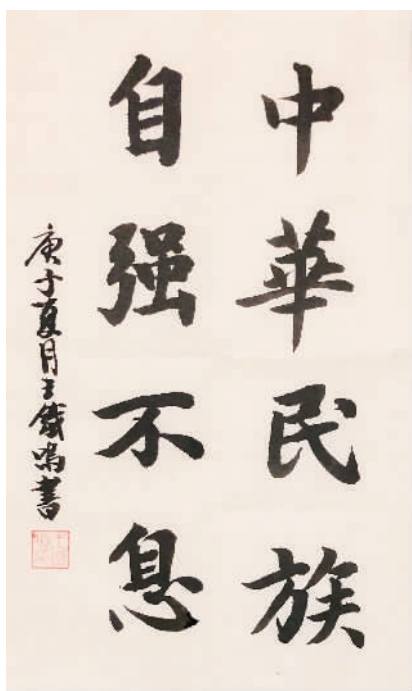 中華民族
自强不息
庚子夏月王鐵鳴書